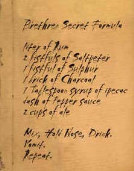 Brethren Secret Formula
liter of Rum
2 fistfuls of Saltpeter
1 fistful of Sulphur
1 brick of Charcoal
1 Tablespoon syrup of ipecac
dash of pepper sauce
2 cups of ale
Mix, Hold Nose, Drink.
Vomit.
Repeat.